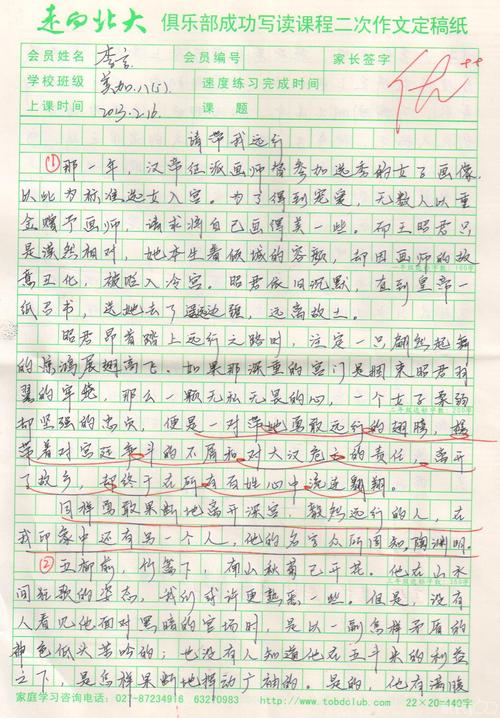 走向北大 俱乐部成功写读课程二次作文定稿纸
会员姓名 李言 会员编号 家长签字
学校班级 美加.八(5). 速度练习完成时间
上课时间 2013.2.16. 课题
优++
请带我远行
①那一年，汉帝任派画师替参加选秀的女子画像，
以此为标准选女入宫。为了得到宠爱，无数人以重
金赠予画师，请求将自己画得美一些。而王昭君只
是漠然相对，她本生着倾城的容颜，却因画师的故
意丑化，被贬入冷宫。昭君依旧沉默，直到皇帝一
一年级达标字数：100字
纸召书，送她去了遥远边疆，远离故土。
昭君昂首踏上远行之路时，注定一只翩然起舞
的惊鸿展翅高飞。如果那深重的宫门是捆束昭君羽
翼的牢笼，那么一颗无私无畏的心，一个女子柔弱
二年级达标字数：200字
却坚强的忠贞，便是一对带她勇敢远行的翅膀，携
带着对宫廷争斗的不屑和对大汉危亡的责任，离开
了故乡，却终于在所有百姓心中流连翩翩。
同样勇敢果断地离开深宫，毅然远行的人，在
我印象中还有另一个人，他的名字众所周知陶渊明。
②五柳前，竹篱下，南山秋菊已开花。他在山水
三年级达标字数：350字
间狂歌的姿态，我们或许更熟悉一些。但是，没有
人看见他面对黑暗的官场时，是以一副怎样矛盾的
神色低头苦吟的；也没有人知道他在五斗米的利益
之下，是怎样果断地挥动广袖的。是的，他有满腹
家庭学习咨询电话：027-87234916 63210983 http://www.tobdclub.com 22×20=440字